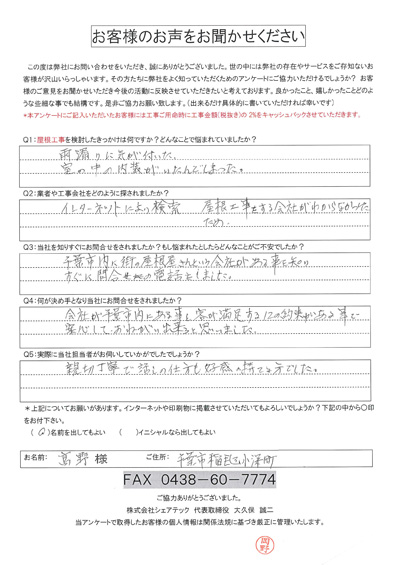 お客様のお声をお聞かせください
この度は弊社にお問い合わせをいただき、誠にありがとうございました。世の中には弊社の存在やサービスをご存知ないお
客様が沢山いらっしゃいます。その方たちに弊社をよく知っていただくためのアンケートにご協力いただけるでしょうか？ お客
様のご意見をお聞かせいただき今後の活動に反映させていただきたいと考えております。良かったこと、嬉しかったことどのよ
うな些細な事でも結構です。是非ご協力お願い致します。（出来るだけ具体的に書いていただければ幸いです）
＊本アンケートにご記入いただいたお客様には工事ご用命時に工事金額（税抜き）の2%をキャッシュバックさせていただきます。
Q1：屋根工事を検討したきっかけは何ですか？どんなことで悩まれていましたか？
雨漏りに気が付いた。
室の中の内装がいたんでしまった。
Q2：業者や工事会社をどのように探されましたか？
インターネットにより検索 屋根工事をする会社がわからなかった
ため。
Q3：当社を知りすぐにお問合せをされましたか？もし悩まれたとしたらどんなことがご不安でしたか？
千葉市内に街の屋根屋さんという会社がある事を知り
すぐに問合せの電話をしました。
Q4：何が決め手となり当社にお問合せをされましたか？
会社が千葉市内にある事と客が満足する12の約束がある事で
安心しておねがい出来ると思いました。
Q5：実際に当社担当者がお伺いしていかがでしたでしょうか？
親切丁寧で話しの仕方も好感が持てる方でした。
＊上記についてお願いがあります。インターネットや印刷物に掲載させていただいてもよろしいでしょうか？下記の中から〇印
をお付下さい。
（〇）名前を出してもよい （ ）イニシャルなら出してもよい
お名前： 高野 様 ご住所： 千葉市稲毛区小深町
FAX 0438-60-7774
ご協力ありがとうございました。
株式会社シェアテック 代表取締役 大久保 誠二
当アンケートで取得したお客様の個人情報は関係法規に基づき厳正に管理いたします。